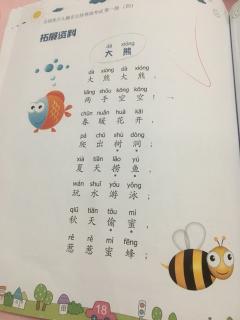 拓展资料
dà xióng
大熊
dà xióng dà xióng
大熊大熊，
liǎng shǒu kōng kōng
两手空空！
chūn nuǎn huā kāi
春暖花开，
pá chū shù dòng
爬出树洞；
xià tiān lāo yú
夏天捞鱼，
wán shuǐ yóu yǒng
玩水游泳；
qiū tiān tōu mì
秋天偷蜜，
rě rě mì fēng
惹惹蜜蜂；
18